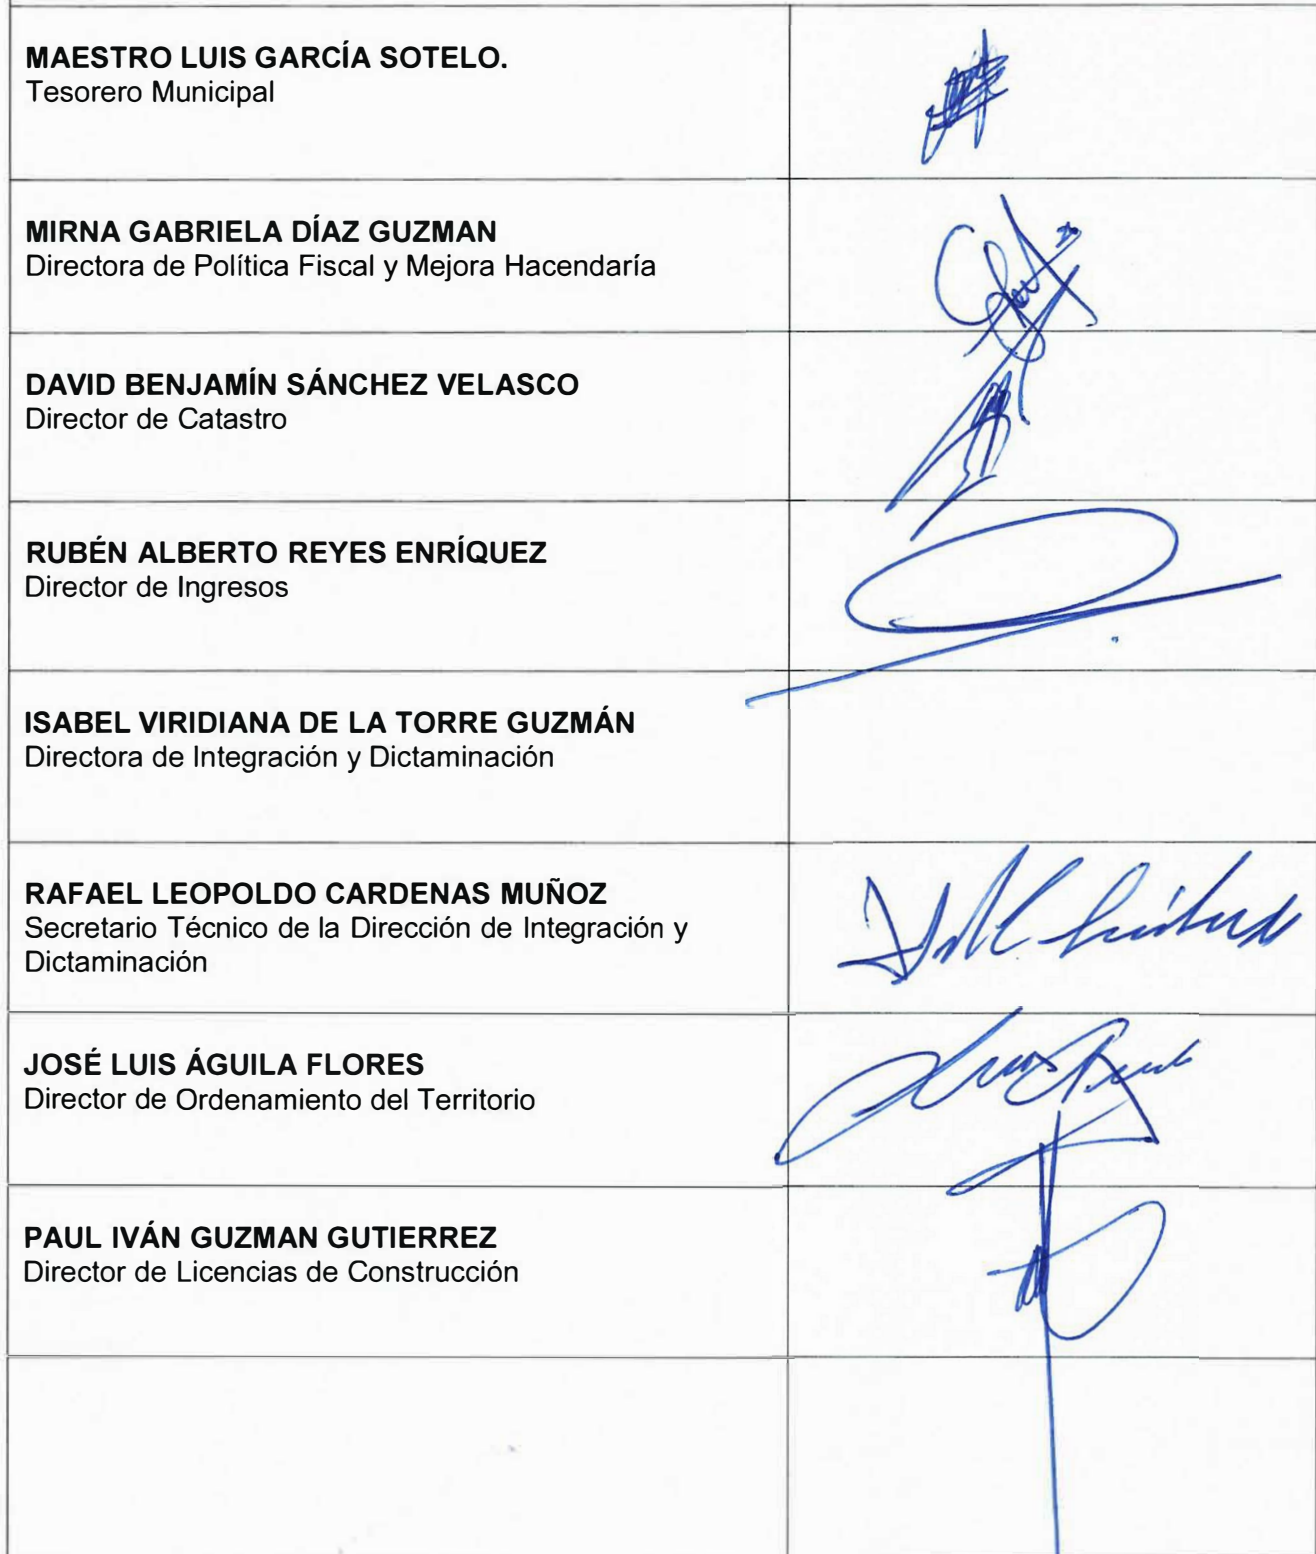 MAESTRO LUIS GARCÍA SOTELO.
Tesorero Municipal
MIRNA GABRIELA DÍAZ GUZMAN
Directora de Política Fiscal y Mejora Hacendaría
DAVID BENJAMÍN SÁNCHEZ VELASCO
Director de Catastro
RUBÉN ALBERTO REYES ENRÍQUEZ
Director de Ingresos
ISABEL VIRIDIANA DE LA TORRE GUZMÁN
Directora de Integración y Dictaminación
RAFAEL LEOPOLDO CARDENAS MUÑOZ
Secretario Técnico de la Dirección de Integración y
Dictaminación
JOSÉ LUIS ÁGUILA FLORES
Director de Ordenamiento del Territorio
PAUL IVÁN GUZMAN GUTIERREZ
Director de Licencias de Construcción